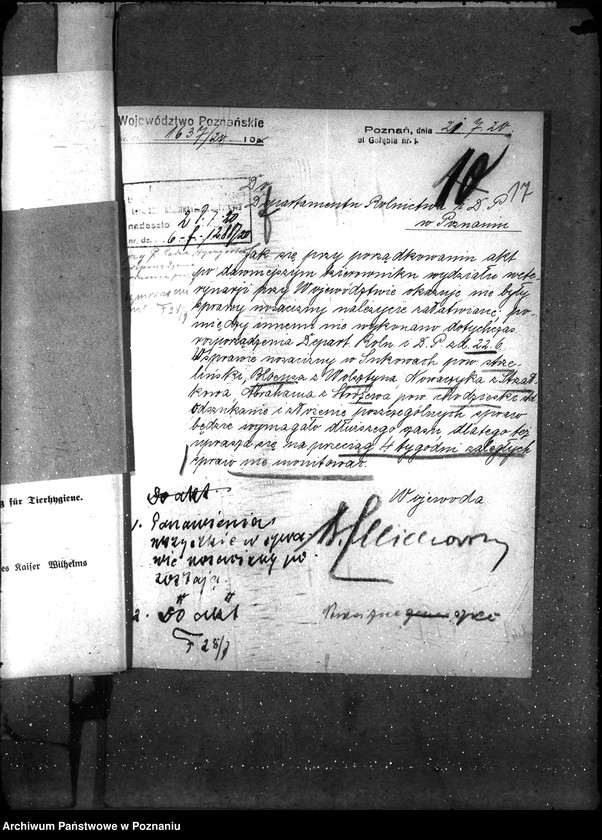 Województwo Poznańskie
1637/20
Poznań, dnia 21.7.20
ul Gołębia nr. 1.
10
17
Do
Departamentu Rolnictwa i D. P
w Poznaniu
nadeszło 27.7.20
nr. dz.
Jak się przy porządkowaniu akt
po dawniejszym kierowniku wydziału wete-
rynarji przy Województwie okazuje nie były
sprawy nosacizny należycie załatwiane; po-
między innemi nie wykonano dotychczas
rozporządzenia Depart Roln i D. P z d. 22.6.
W sprawie nosacizny w Sukowach pow. strze-
lińskі, z Wolsztyna, Nowaczyka z
Abrahama z Strożewa pow. chodzieski
Odszukanie i złożenie poszczególnych spraw
będzie wymagało dłuższego czasu dlatego też
uprasza się na przeciąg 4 tygodni zaległych
spraw nie monitować.
Wojewoda
Do akt.
1. Ponawienia
wszystkie w spra-
wie nosacizny po
zostają.
2. Do akt
F 28/7
g für Tierhygiene.
es Kaiser Wilhelms
Archiwum Państwowe w Poznaniu